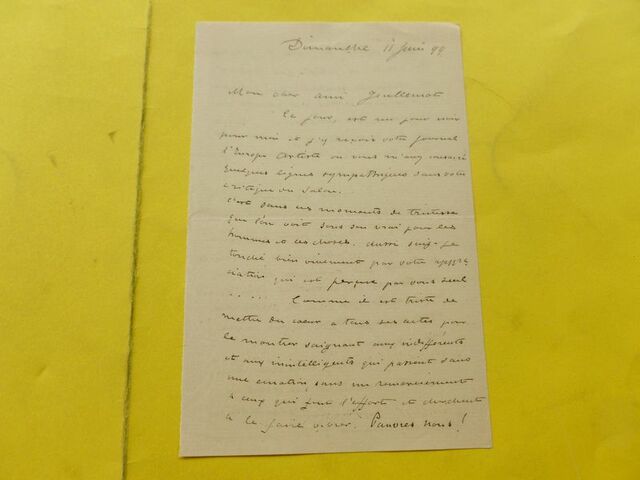 Dimanche 11 Juin 99
Mon cher ami Guillemot
Ce jour, est un jour noir
pour moi et j'y reçois votre journal
l'Europe Artiste où vous m'avez consacré
quelques lignes sympathiques dans votre
critique du Salon.
C'est dans ces moments de tristesse
que l'on voit sous son vrai jour les
hommes et les choses. aussi suis-je
touché bien vivement par votre appré
ciation qui est presque par vous seul
..... Comme il est triste de
mettre du coeur a tous ses actes pour
le montrer saignant aux indifférents
et aux inintelligents qui passent sans
une émotion, sans un remerciement
a ceux qui font l'effort et cherchent
a le faire vibrer. Pauvres nous!